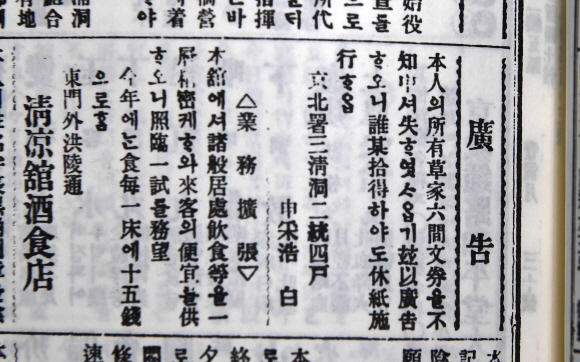 始役
으로
所代
指揮
는바
廣告
本人의所有草家六間文券을不
知中셔失ᄒᆞ엿ᄉᆞ옵기玆以廣告
ᄒᆞ오니誰某拾得하야도休紙施
行ᄒᆞ옴
京北署三淸洞二統四戶
申采浩 白
△業務擴張▽
本舘에셔諸般居處飮食等을一
層精密케ᄒᆞ와來客의便宜을供
ᄒᆞ오니照臨一試를務望
今年에ᄂᆞᆫ食每一床에十五錢
으로홈
東門外洪陵通
淸凉舘酒食店